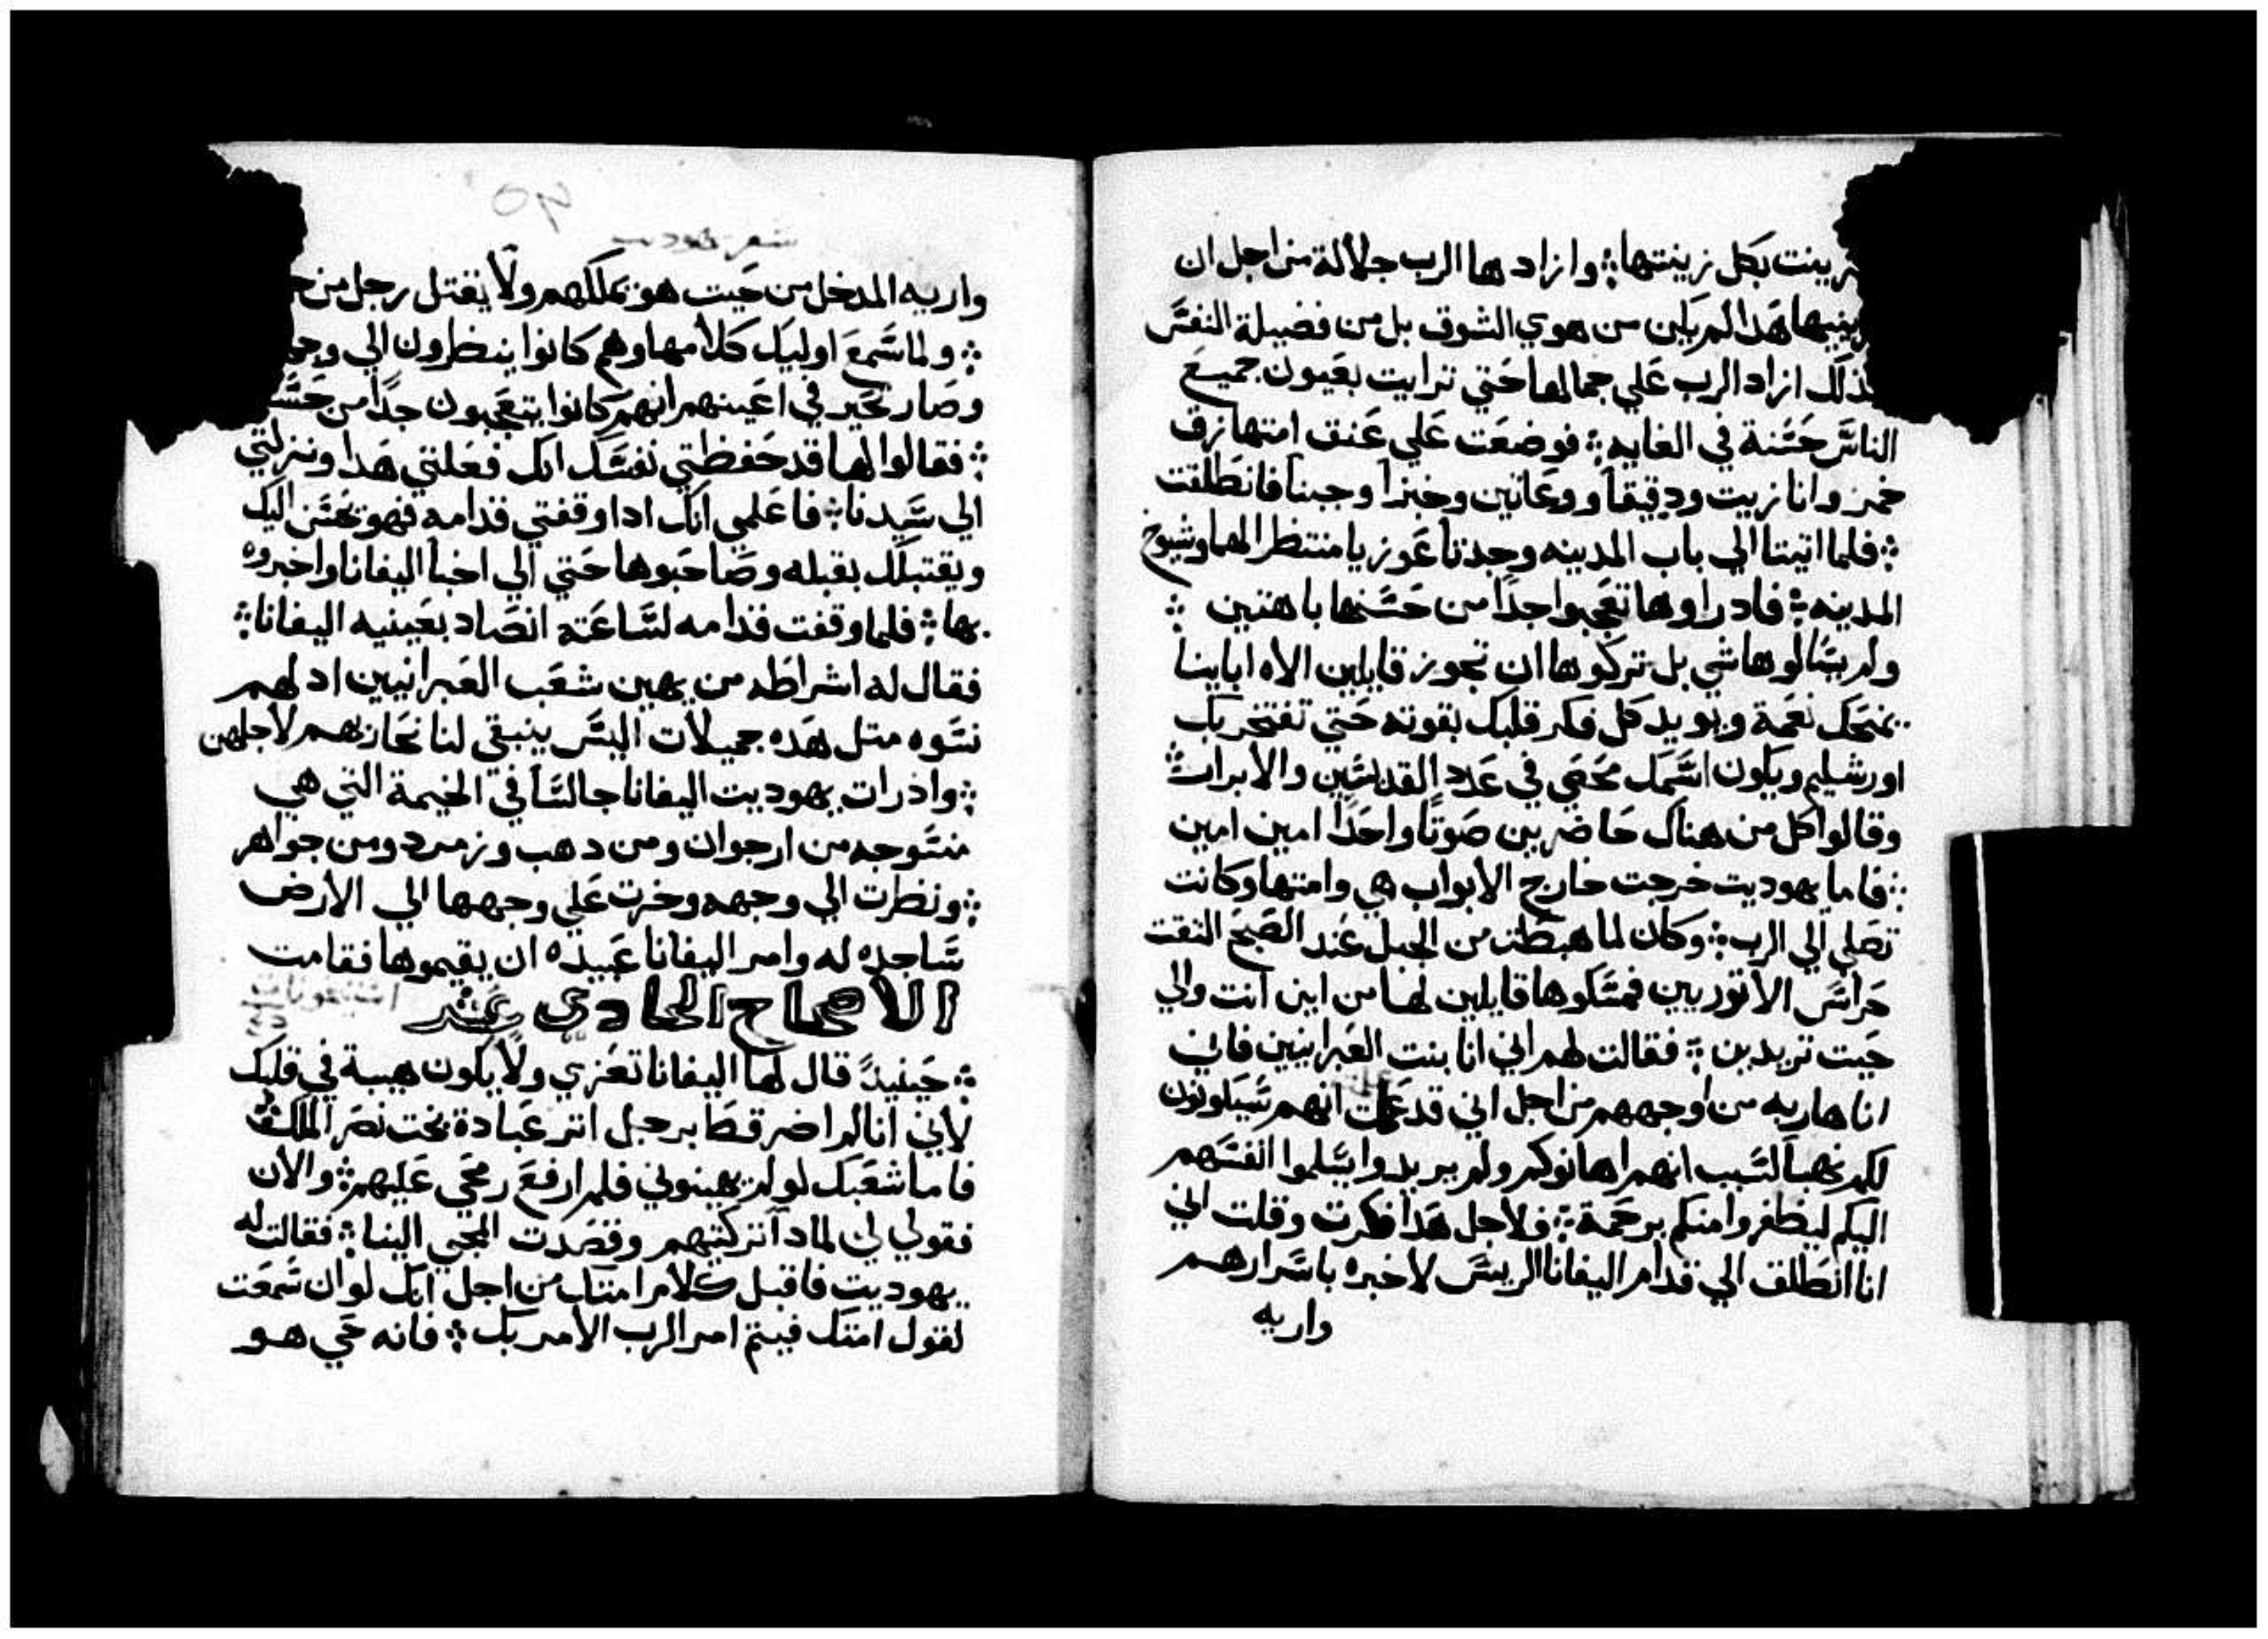 بكل زينتها؛ وازادها الرب جلالة من اجل ان
هدا لم يكن من هوي الشوق بل من فضيلة النفس
ازاد الرب علي جمالها حتي ترايت بعيون جميع
الناس حسنة في الغايه؛ فوضعت علي عنق امتها زق
خمر وانا زيت ودقيقا ووعاتين وخبزا وجبنا فانطلقت
؛ فلما اتيتا الي باب المدينه وجدتا عوزيا منتظرا لهما وشيوخ
المدينه؛ فاد راوها تعجبوا جدا من حسنها باهتين ؛
ولم يسالوها شي بل تركوها ان تجوز قايلين الاه اباينا
يمنحك نعمة ويويد كل فكر قلبك بقوته حتي تفتخر بك
اورشليم ويكون اسمك محصي في عدد القديسين والابرار؛
وقالوا كل من هناك حاضرين صوتا واحدا امين امين
؛ فاما يهوديت خرجت خارج الابواب هي وامتها وكانت
تصلي الي الرب؛ وكان لما هبطت من الجبل عند الصبح التقت
حراس الاتوريين فمسكوها قايلين لها من اين انت والي
حيت تريدين ؛ فقالت لهم اني انا بنت العبرانيين فاني
انا هاربه من اوجههم من اجل اني قد علمت انهم سيبلونون
لكم نهبا لسبب انهم اهانوكم ولم يريدوا يسلموا انفسهم
اليكم ليظفروا منكم برحمة؛ فلاجل هدا فكرت وقلت اني
انا انطلق الي قدام اليفانا الريس لاخبره باسرارهم
واريه
٩٥
سفر يهوديت
واريه المدخل من حيت هو يملكهم ولا يقتل رجل من
؛ ولما سمع اوليك كلامها وهم كانوا ينظرون الي
وصار تحير في اعينهم انهم كانوا يتعجبون جدا من
؛ فقالوا لها قد حفظتي نفسك انك فعلتي هدا ونزلتي
الي سيدنا؛ فاعلمي انك ادا وقفتي قدامه فهو يحسن اليك
ويقتبلك بقبله وصاحبوها حتي الي اخبا اليفانا واخبروه
بها؛ فلما وقفت قدامه لساعته انصاد بعينيه اليفانا؛
فقال له اشراطه من يهين شعب العبرانيين اد لهم
نسوه متل هده جميلات اليس ينبقي لنا نحاربهم لاجلهن
؛ واد رات يهوديت اليفانا جالسا في الخيمة التي هي
منسوجه من ارجوان ومن دهب وزمرد ومن جواهر
؛ ونظرت الي وجهه وخرت علي وجهها الي الارض
ساجده له وامر اليفانا عبيده ان يقيموها فقامت
الاصحاح الحادي عشر
؛ حينيد قال لها اليفانا تعزي ولا يكون هيبة في قلبك
لاني انا لم اضر قط برجل اتر عبادة بخت نصر الملك؛
فاما شعبك لو لم يهينوني فلم ارفع رمحي عليهم؛ والان
فقولي لي لمادا تركتيهم وقصدت المجي الينا؛ فقالت له
يهوديت فاقبل كلام امتك من اجل انك لو ان سمعت
لقول امتك فيتم امر الرب الامر بك؛ فانه حي هو